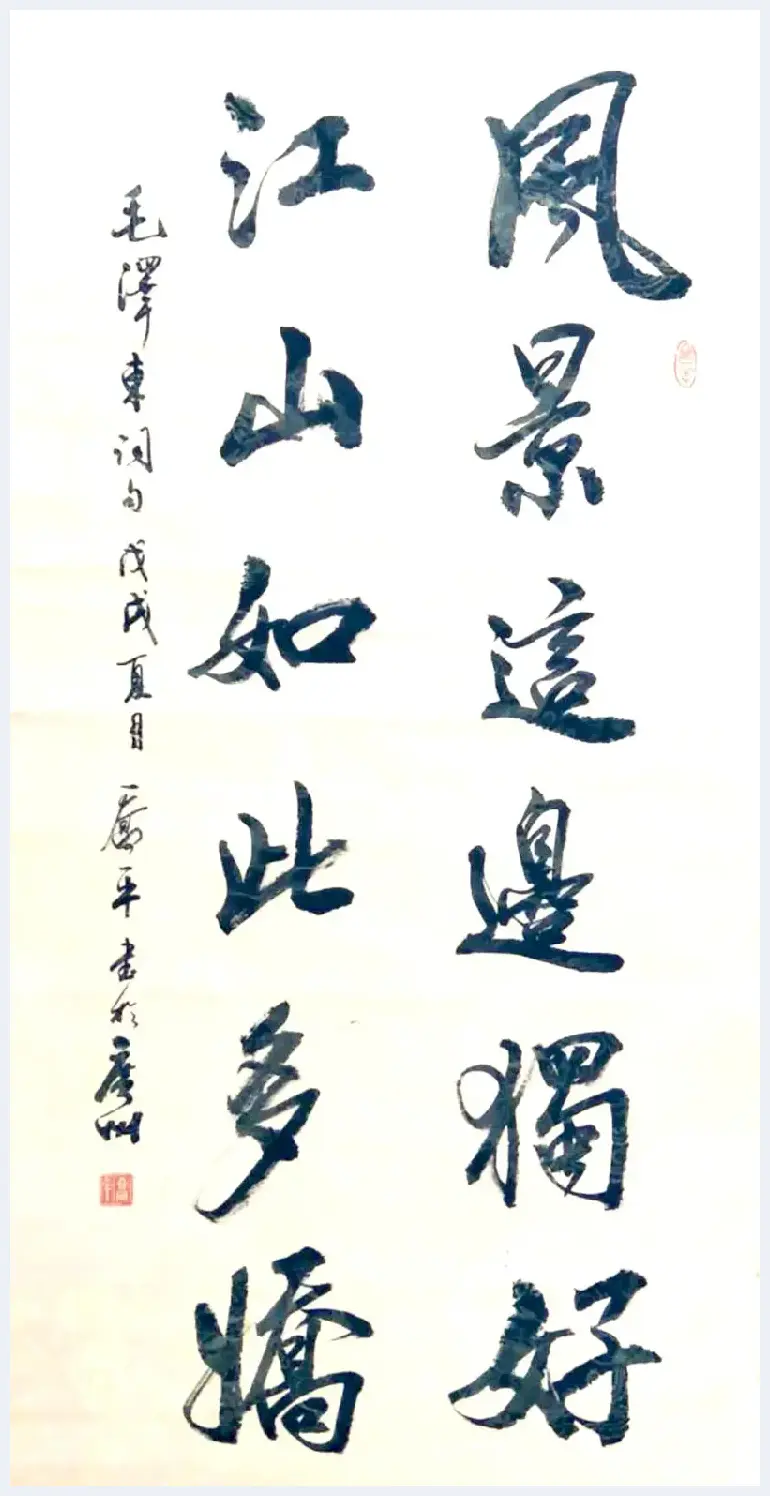 風景這邊獨好
江山如此多嬌
毛澤東詞句戊戌夏月喬平書於廣州